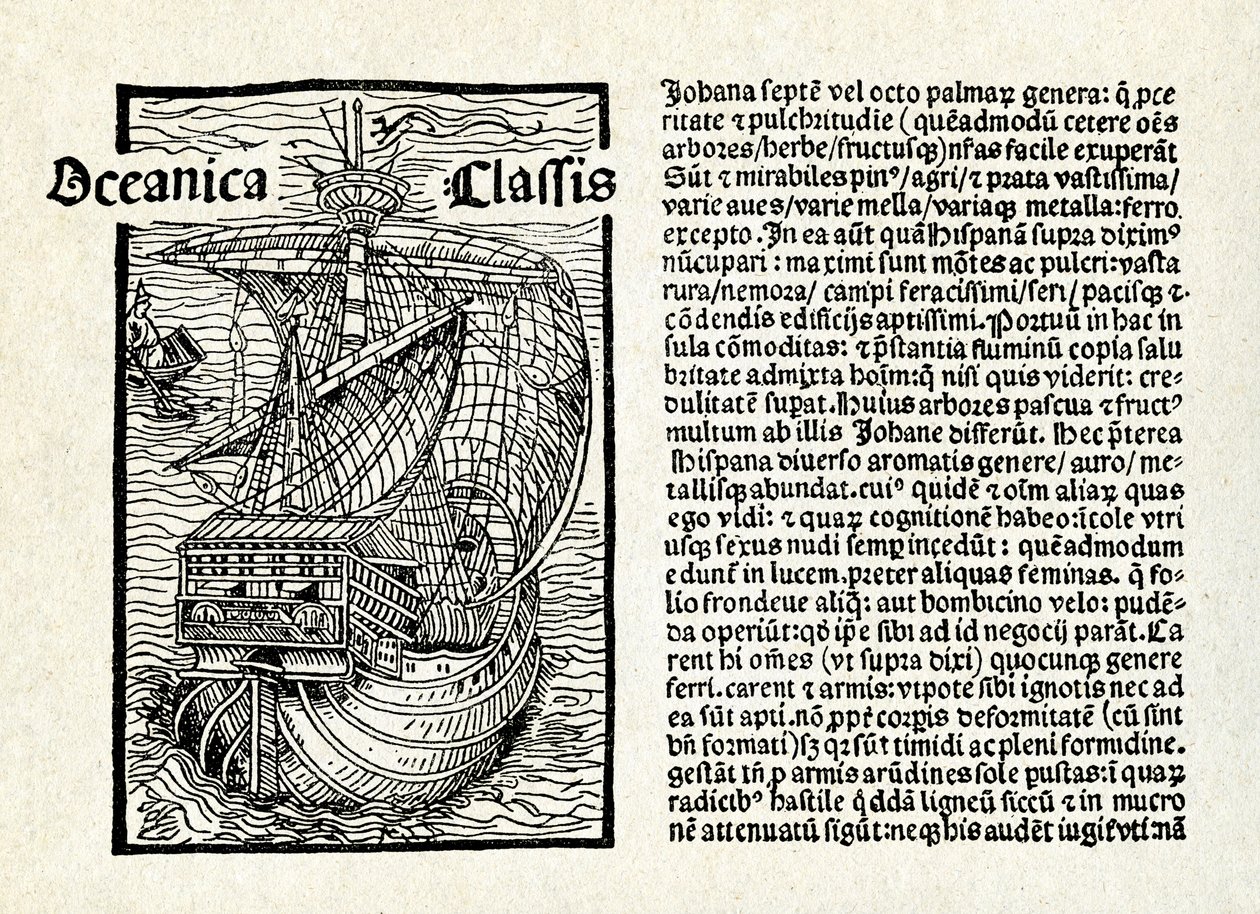 Oceanica :Classis
Johana septē vel octo palmaꝝ genera: q̄ ꝓce
ritate ⁊ pulchritudie (quēadmodū cetere oēs
arbores/herbe/fructusqꝫ)nr̄as facile exuperāt
Sūt ⁊ mirabiles pinꝰ/agri/⁊ prata vastissima/
varie aues/varie mella/variaqꝫ metalla:ferro
excepto. In ea aūt quā Hispanā supra diximꝰ
nūcupari: maximi sunt mōtes ac pulcri: vasta
rura/nemora/ campi feracissimi/seri/ pacisqꝫ ⁊
cōdendis edificijs aptissimi. Portuū in hac in
sula cōmoditas: ⁊ p̄stantia fluminū copia salu
britate admixta hoīm: q̄ nisi quis viderit: cre-
dulitatē suꝑat. Huius arbores pascua ⁊ fructꝰ
multum ab illis Johane differūt. Hec p̄terea
Hispana diuerso aromatis genere/ auro/ me-
tallisqꝫ abundat. cuiꝰ quidē ⁊ oīm aliaꝝ quas
ego vidi: ⁊ quaꝝ cognitionē habeo: īcole vtri
usqꝫ sexus nudi semꝑ incedūt: quēadmodum
edunt̄ in lucem. preter aliquas feminas. q̄ fo-
lio frondeue aliq̄: aut bombicino velo: pudē-
da operiūt: qd̓ ip̄e sibi ad id negocij parāt. Ca
rent hi om̄es (vt supra dixi) quocunqꝫ genere
ferri. carent ⁊ armis: vtpote sibi ignotis nec ad
ea sūt apti. nō ꝓpt̄ corꝑis deformitatē (cū sint
bn̄ formati) sꝫ qꝛ sūt timidi ac pleni formidine.
gestāt tn̄ ꝓ armis arūdines sole pustas: ī quaꝝ
radicibꝰ hastile q̊ddā ligneū siccū ⁊ in mucro
nē attenuatū sigūt: neqꝫ his audēt iugit̓ vti: nā